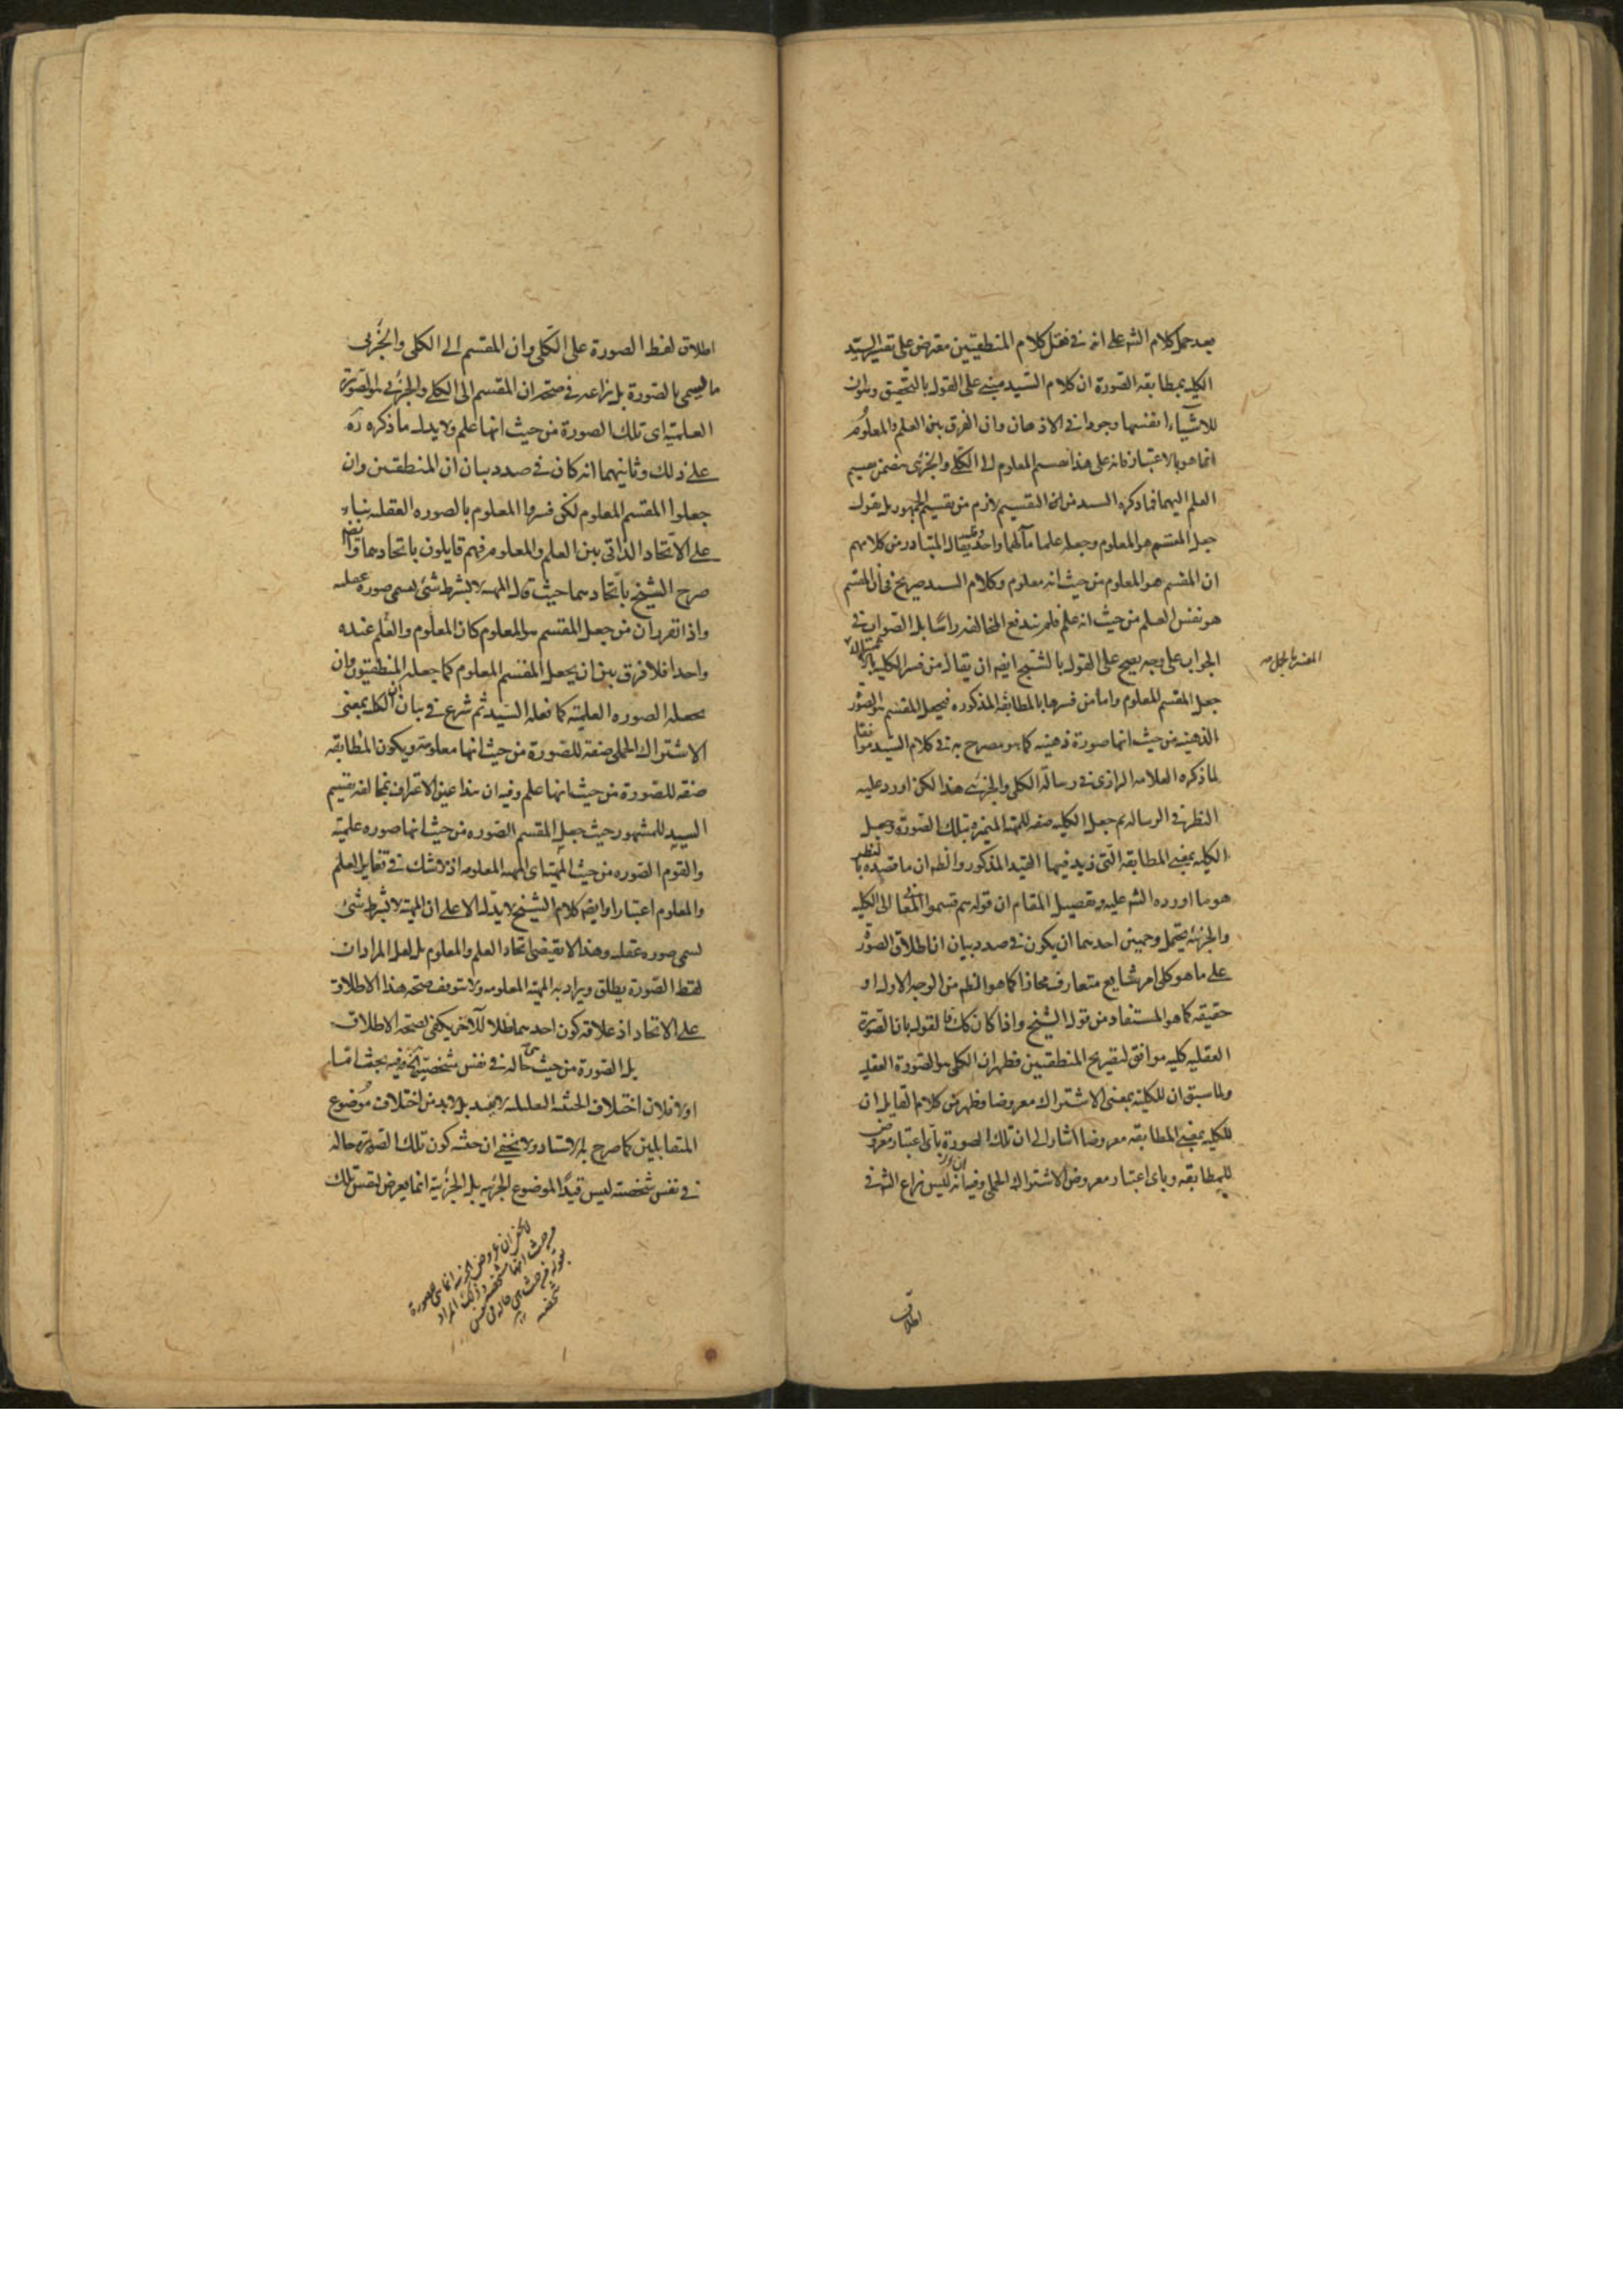 بعد حمل كلام الشه على انه في نقل كلام المنطقيين معترض على تفسير السيد
الكليه بمطابقه الصورة ان كلام السيد مبني على القول بالتحقيق وبان
للاشياء انفسها وجودا في الاذهان وان الفرق بين العلم والمعلوم
انما هو بالاعتبار فانه على هذا تقسيم المعلوم الى الكلي والجزئى يتضمن تقسيم
العلم اليهما فما ذكره السيد من ان التقسيم لازم من تقسيم الجمهور بل نقول
جعل المقسم هو المعلوم وجعله علما مآلهما واحد يقال المتبادر من كلامهم
ان المقسم هو المعلوم من حيث انه معلوم وكلام السيد صريح في ان المقسم
هو نفس العلم من حيث انه علم فلم تندفع المخالفه راسا بل الصواب في
الجواب على وجه يصح على القول بالشبح ايضا ان يقال من فسر الكليه
جعل المقسم المعلوم واما من فسرها بالمطابقة المذكوره فيجعل المقسم هو الصور
الذهنيه من حيث انها صورة ذهنيه كما هو مصرح به في كلام السيد موافقا
لما ذكره العلامه الرازى في رسالة الكلى والجزئى هذا لكن اورد عليه
النظر في الرساله ثم جعل الكليه صفه للمهية المتميزه بتلك الصورة وجعل
الكليه بمعنى المطابقه التى زيد فيها القيد المذكور والظه ان ما قصده بالنظر
هو ما اورده الشه عليه وتفصيل المقام ان قوله ثم قسموا المعانى الى الكليه
والجزئيه يحتمل وجهين احدهما ان يكون في صدد بيان ان اطلاق الصور
على ما هو كلى امر شايع متعارف مجازا كما هو الظه من الوجه الاول او
حقيقه كما هو المستفاد من قول الشيخ واذا كان كك فالقول بان الصورة
العقليه كليه موافق لتصريح المنطقيين فظهر ان الكلى هو الصورة العقليه
ولما سبق ان للكلية بمعنى الاشتراك معروضا وظهر من كلام القايل ان
للكليه بمعنى المطابقه معروضا اشار الى ان تلك الصورة باى اعتبار معروض
للمطابقه وباى اعتبار معروض الاشتراك الحملى وفيه انه ليس نزاع الشه في
اطلاق
اطلاق لفظ الصورة على الكلى وان المقسم الى الكلى والجزئى
ما يسمى بالصورة بل نزاعه في صحة ان المقسم الى الكلى والجزئى هو الصورة
العلمية اى تلك الصورة من حيث انها علم ولا يدل ما ذكره ره
على ذلك وثانيهما انه كان في صدد بيان ان المنطقيين وان
جعلوا المقسم المعلوم لكن فسروا المعلوم بالصوره العقليه بناء
على الاتحاد الذاتى بين العلم والمعلوم فهم قايلون باتحادهما وايضا
صرح الشيخ باتحادهما حيث قال المهيه لا بشرط شئ يسمى صوره عقليه
واذا تقرر ان من جعل المقسم هو المعلوم كان المعلوم والعلم عنده
واحدا فلا فرق بين ان يجعل المقسم المعلوم كما جعله المنطقيون وان
يجعله الصوره العلمية كما فعله السيد ثم شرع في بيان ان الكليه بمعنى
الاشتراك الحملى صفة للصورة من حيث انها معلومة ويكون المطابقه
صفه للصورة من حيث انها علم وفيه ان هذا عين الاعتراف بمخالفه تقسيم
السيد للمشهور حيث جعل المقسم الصوره من حيث انها صوره علمية
والقوم الصوره من حيث المهية اى المهيه المعلومه اذ لا شك في تغاير العلم
والمعلوم اعتبارا وايضا كلام الشيخ لا يدل الا على ان المهية لا بشرط شئ
يسمى صوره عقليه وهذا لا يقتضى اتحاد العلم والمعلوم بل لعل المراد ان
لفظ الصورة يطلق ويراد به المهية المعلومه ولا يتوقف صحة هذا الاطلاق
على الاتحاد اذ علاقه كون احدهما ظلا للآخر يكفى لصحة الاطلاق
بل الصورة من حيث هى حاله في نفس شخصية الخ وفيه بحث اما
اولا فلان اختلاف الحيثيه التعليليه لا يجدى بل لابد من اختلاف موضوع
المتقابلين كما صرح به الاستاد ولا يخفى ان حيثيه كون تلك الصورة حاله
في نفس شخصيه ليس قيدا لموضوع الجزئيه بل الجزئية انما يعرض لنفس تلك